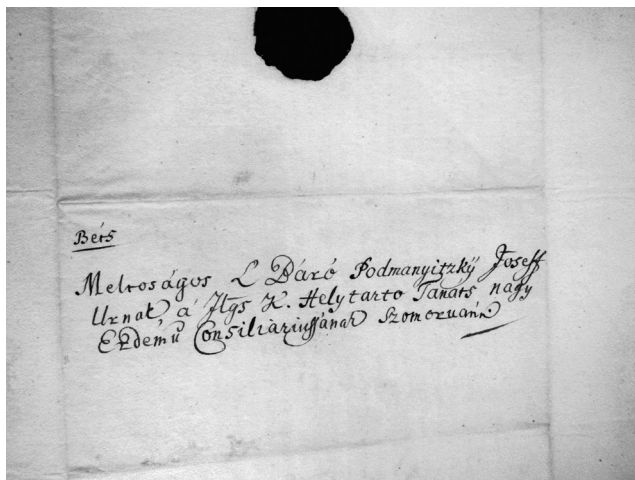 Béts
Meltoságos L Báró Podmanyitzkÿ Joseff
Urnak á Ftgs K. Helytarto Tanáts nagy
Erdemű Consiliáriussának